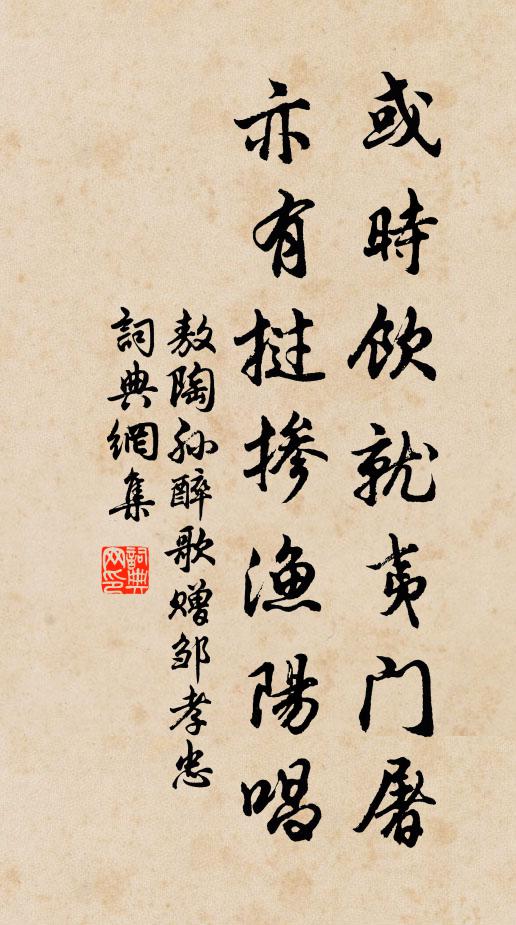 或時飲就夷门屠
亦有撾摻漁陽唱
敖陶孙醉歌赠邹孝忠
詞典網集
詞典网印